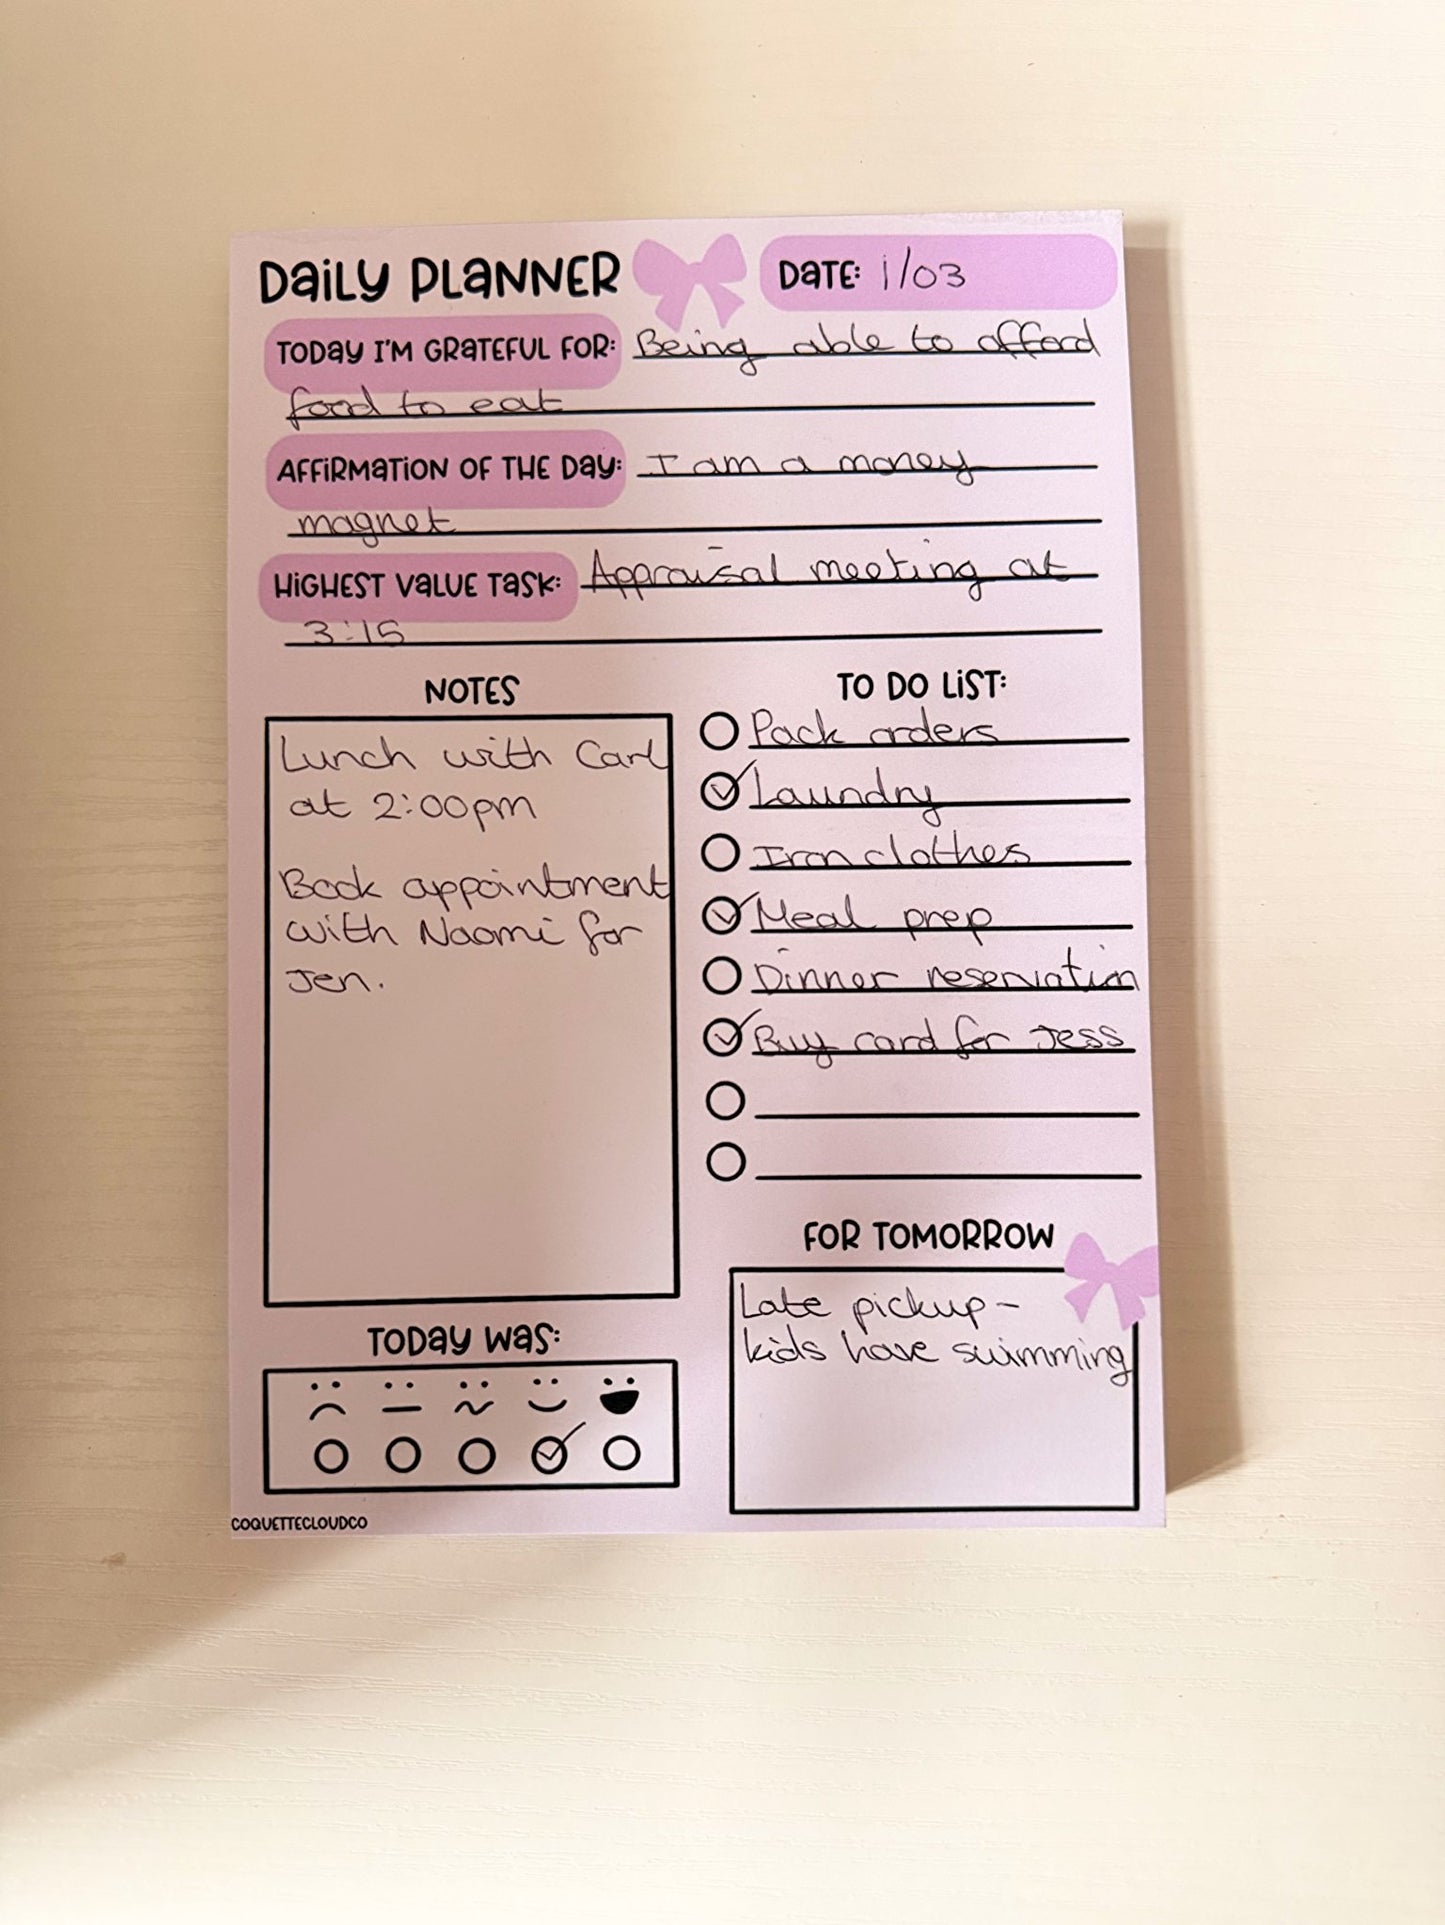 DAILY PLANNER
DATE: 1/03
TODAY I'M GRATEFUL FOR: Being able to afford
food to eat
AFFIRMATION OF THE DAY: I am a money
magnet
HIGHEST VALUE TASK: Appraisal meeting at
3:15
NOTES
Lunch with Carl
at 2:00pm
Book appointment
with Naomi for
Jen.
TO DO LIST:
Pack orders
Laundry
Iron clothes
Meal prep
Dinner reservation
Buy card for Jess
FOR TOMORROW
Late pickup-
kids have swimming
TODAY WAS:
COQUETTECLOUDCO